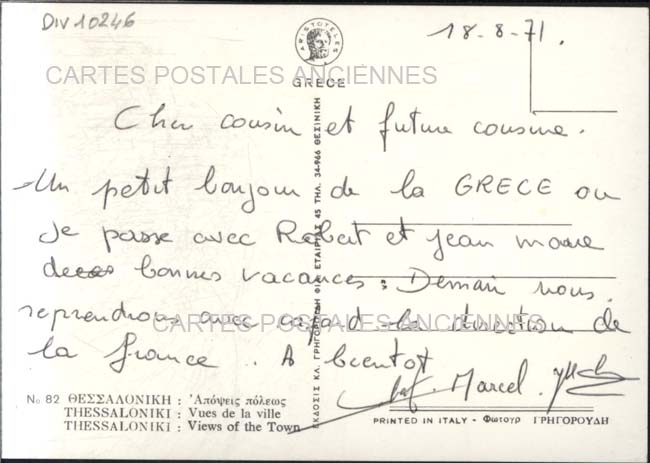 DIV 10246
ARISTOTELES
18-8-71.
CARTES POSTALES ANCIENNES
GRECE
Cher cousin et future cousine.
Un petit bonjour de la GRECE ou
je passe avec Robert et jean marie
de bonnes vacances. Demain nous
reprendrons avec cafard la direction de
CARTES POSTALES ANCIENNES
la france. A bientot
Marcel
ΕΚΔΟΣΙΣ ΚΛ. ΓΡΗΓΟΡΟΥΔΗ ΦΙΛ. ΕΤΑΙΡΙΑΣ 45 ΤΗΛ. 34-966 ΘΕΣ/ΝΙΚΗ
No 82 ΘΕΣΣΑΛΟΝΙΚΗ : Ἀπόψεις πόλεως
THESSALONIKI : Vues de la ville
THESSALONIKI : Views of the Town
PRINTED IN ITALY - Φωτογρ ΓΡΗΓΟΡΟΥΔΗ